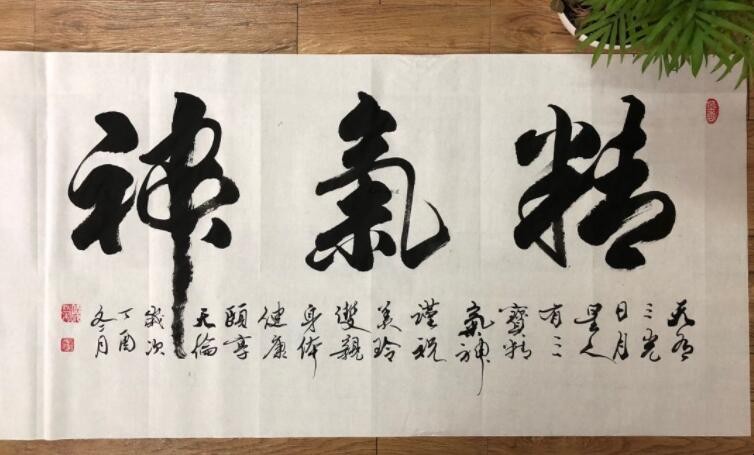 精氣神
天有
三光
日月
星人
有三
寶精
氣神
謹祝
美玲
雙親
身体
健康
頤享
天倫
歲次
丁酉
冬月